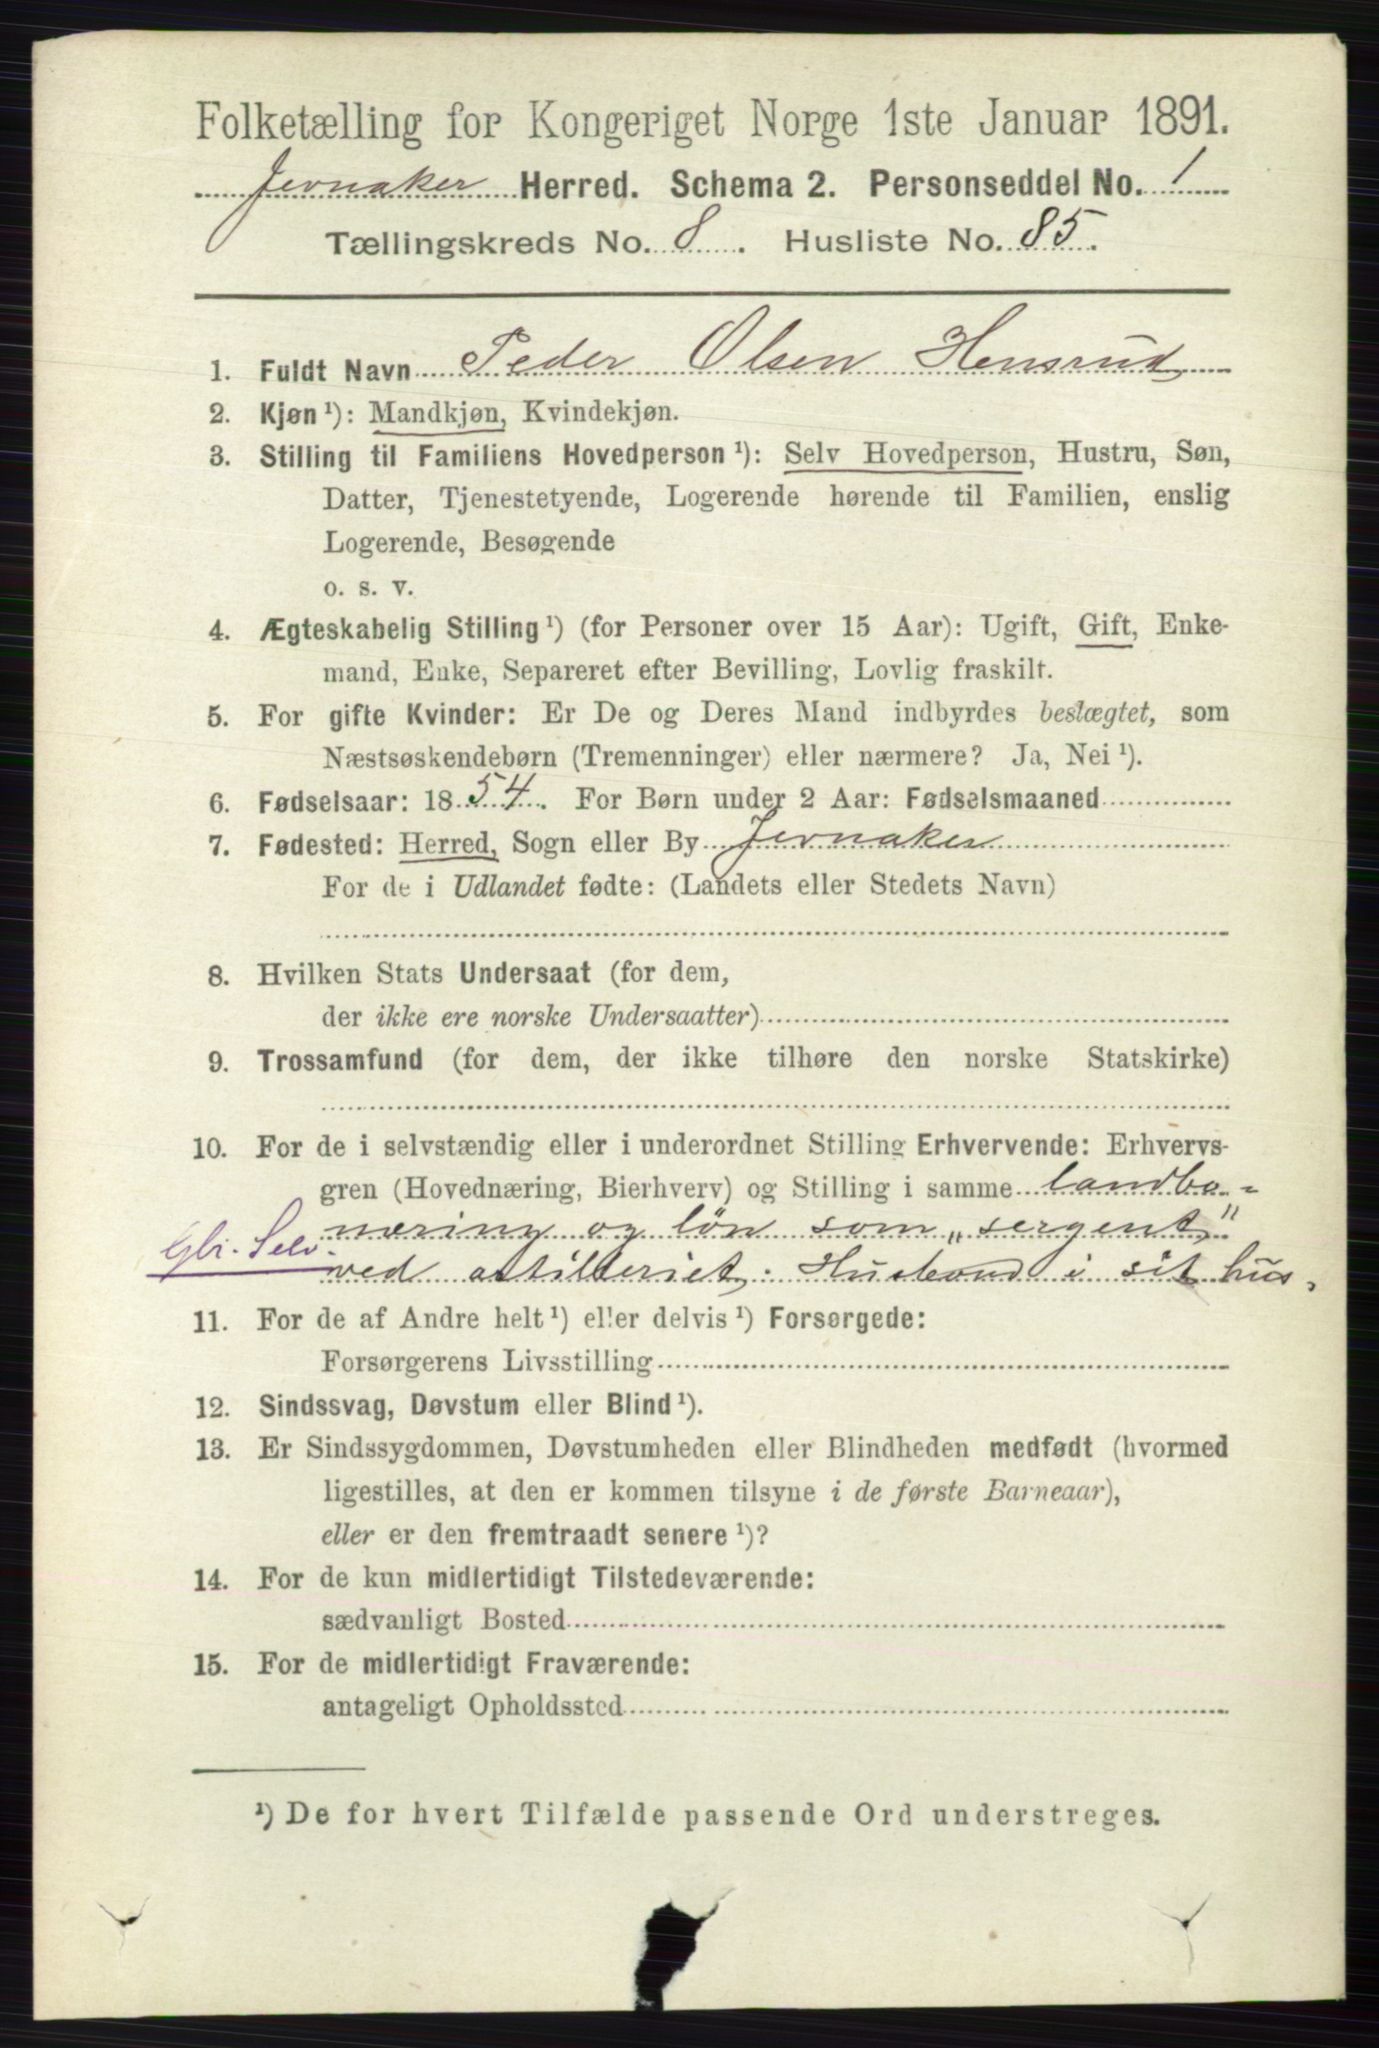 Folketælling for Kongeriget Norge 1ste Januar 1891.
Jevnaker Herred. Schema 2. Personseddel No. 1
Tællingskreds No. 8. Husliste No. 85.
1. Fuldt Navn Peder Olsen Hensrud
2. Kjøn ¹): Mandkjøn, Kvindekjøn.
3. Stilling til Familiens Hovedperson ¹): Selv Hovedperson, Hustru, Søn,
Datter, Tjenestetyende, Logerende hørende til Familien, enslig
Logerende, Besøgende
o. s. v.
4. Ægteskabelig Stilling ¹) (for Personer over 15 Aar): Ugift, Gift, Enke-
mand, Enke, Separeret efter Bevilling, Lovlig fraskilt.
5. For gifte Kvinder: Er De og Deres Mand indbyrdes beslægtet, som
Næstsøskendebørn (Tremenninger) eller nærmere? Ja, Nei ¹).
6. Fødselsaar: 1854. For Børn under 2 Aar: Fødselsmaaned
7. Fødested: Herred, Sogn eller By Jevnaker
For de i Udlandet fødte: (Landets eller Stedets Navn)
8. Hvilken Stats Undersaat (for dem,
der ikke ere norske Undersaatter)
9. Trossamfund (for dem, der ikke tilhøre den norske Statskirke)
10. For de i selvstændig eller i underordnet Stilling Erhvervende: Erhvervs-
gren (Hovednæring, Bierhverv) og Stilling i samme landbo-
næring og løn som „sergent"
Gbr. Selv.
ved artilleriet. Husbond i sit hus.
11. For de af Andre helt ¹) eller delvis ¹) Forsørgede:
Forsørgerens Livsstilling
12. Sindssvag, Døvstum eller Blind ¹).
13. Er Sindssygdommen, Døvstumheden eller Blindheden medfødt (hvormed
ligestilles, at den er kommen tilsyne i de første Barneaar),
eller er den fremtraadt senere ¹)?
14. For de kun midlertidigt Tilstedeværende:
sædvanligt Bosted
15. For de midlertidigt Fraværende:
antageligt Opholdssted
¹) De for hvert Tilfælde passende Ord understreges.